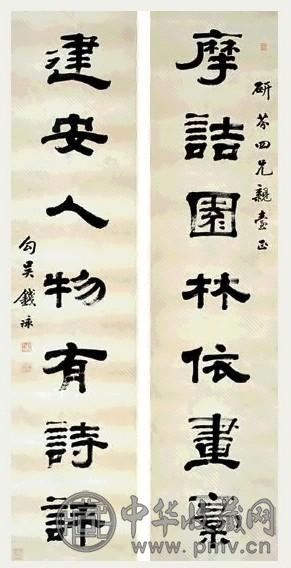 研芬四兄親臺正
摩詰園林依畫
建安人物有詩
勾吳錢泳
中华收藏网
www.pmv.cn